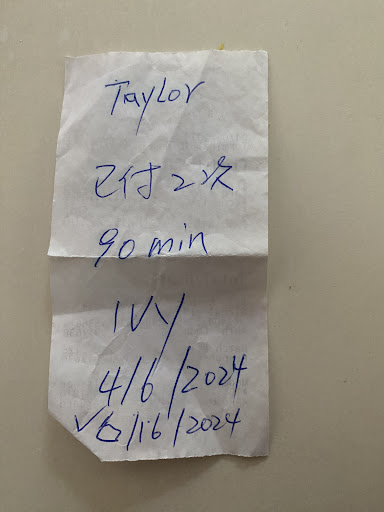 Taylor
已付2次
90 min
IVY
4/6/2024
✓6/16/2024